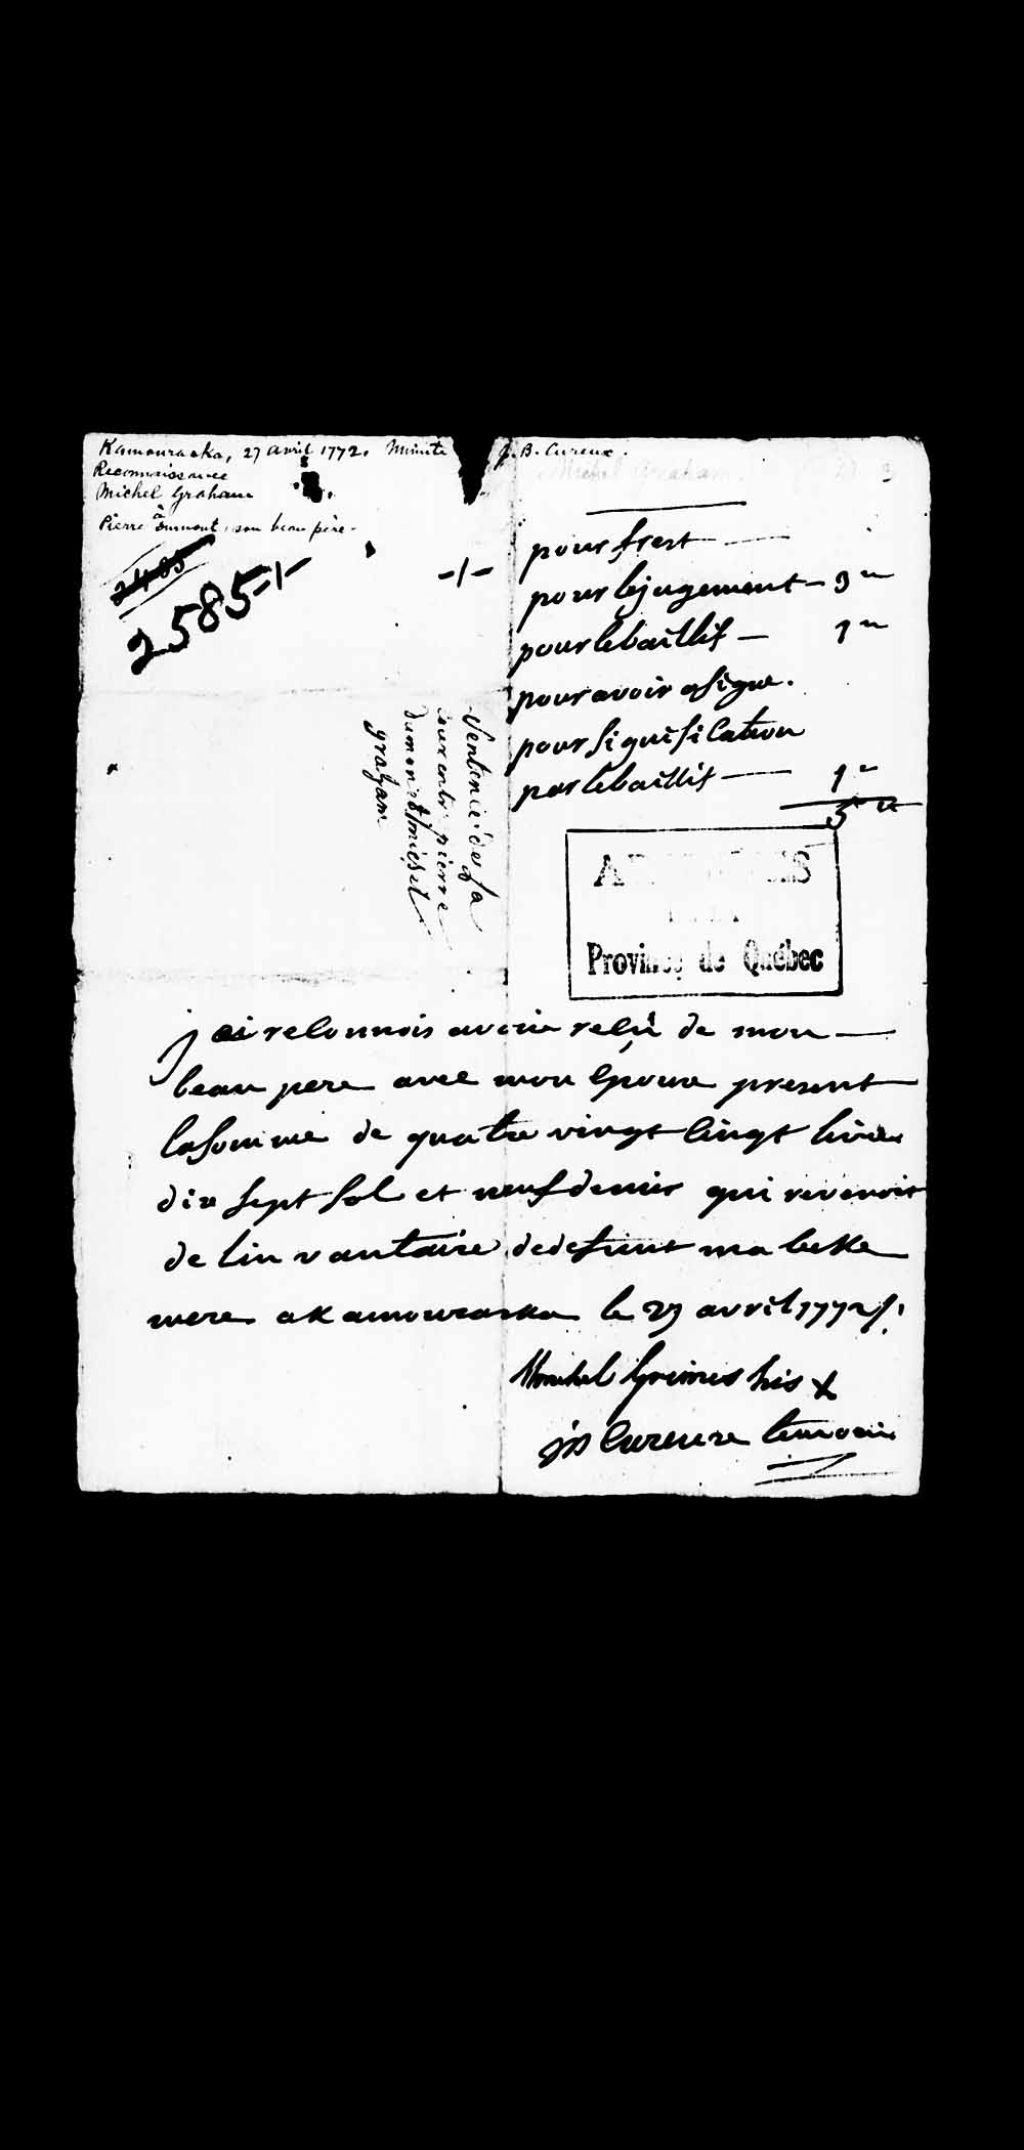 Kamouraska, 27 avril 1772. Minute J. B. Cureux.
Reconnaissance
Michel Graham
à
Pierre Dumont, son beau père.
2485
2585-1-
-1-
pour frest
pour lejugement - 3 "
pour lebaillif — 1 "
pour avoir asigne.
pour signification
par lebaillif — 1 "
5 "
Sentence de la
cour entre pierre
dumont & michel
graham
Province de Québec
j ai reconnois avoir recû de mon
beau pere avec mon épouse present
lasomme de quatre vingt cingt livres
dix sept sol et neuf denier qui revenoit
de lin vantaire dedefunt ma belle
mere a kamouraska le 27 avril 1772 /.
Michel Grimes his x
jB Cureux temoin